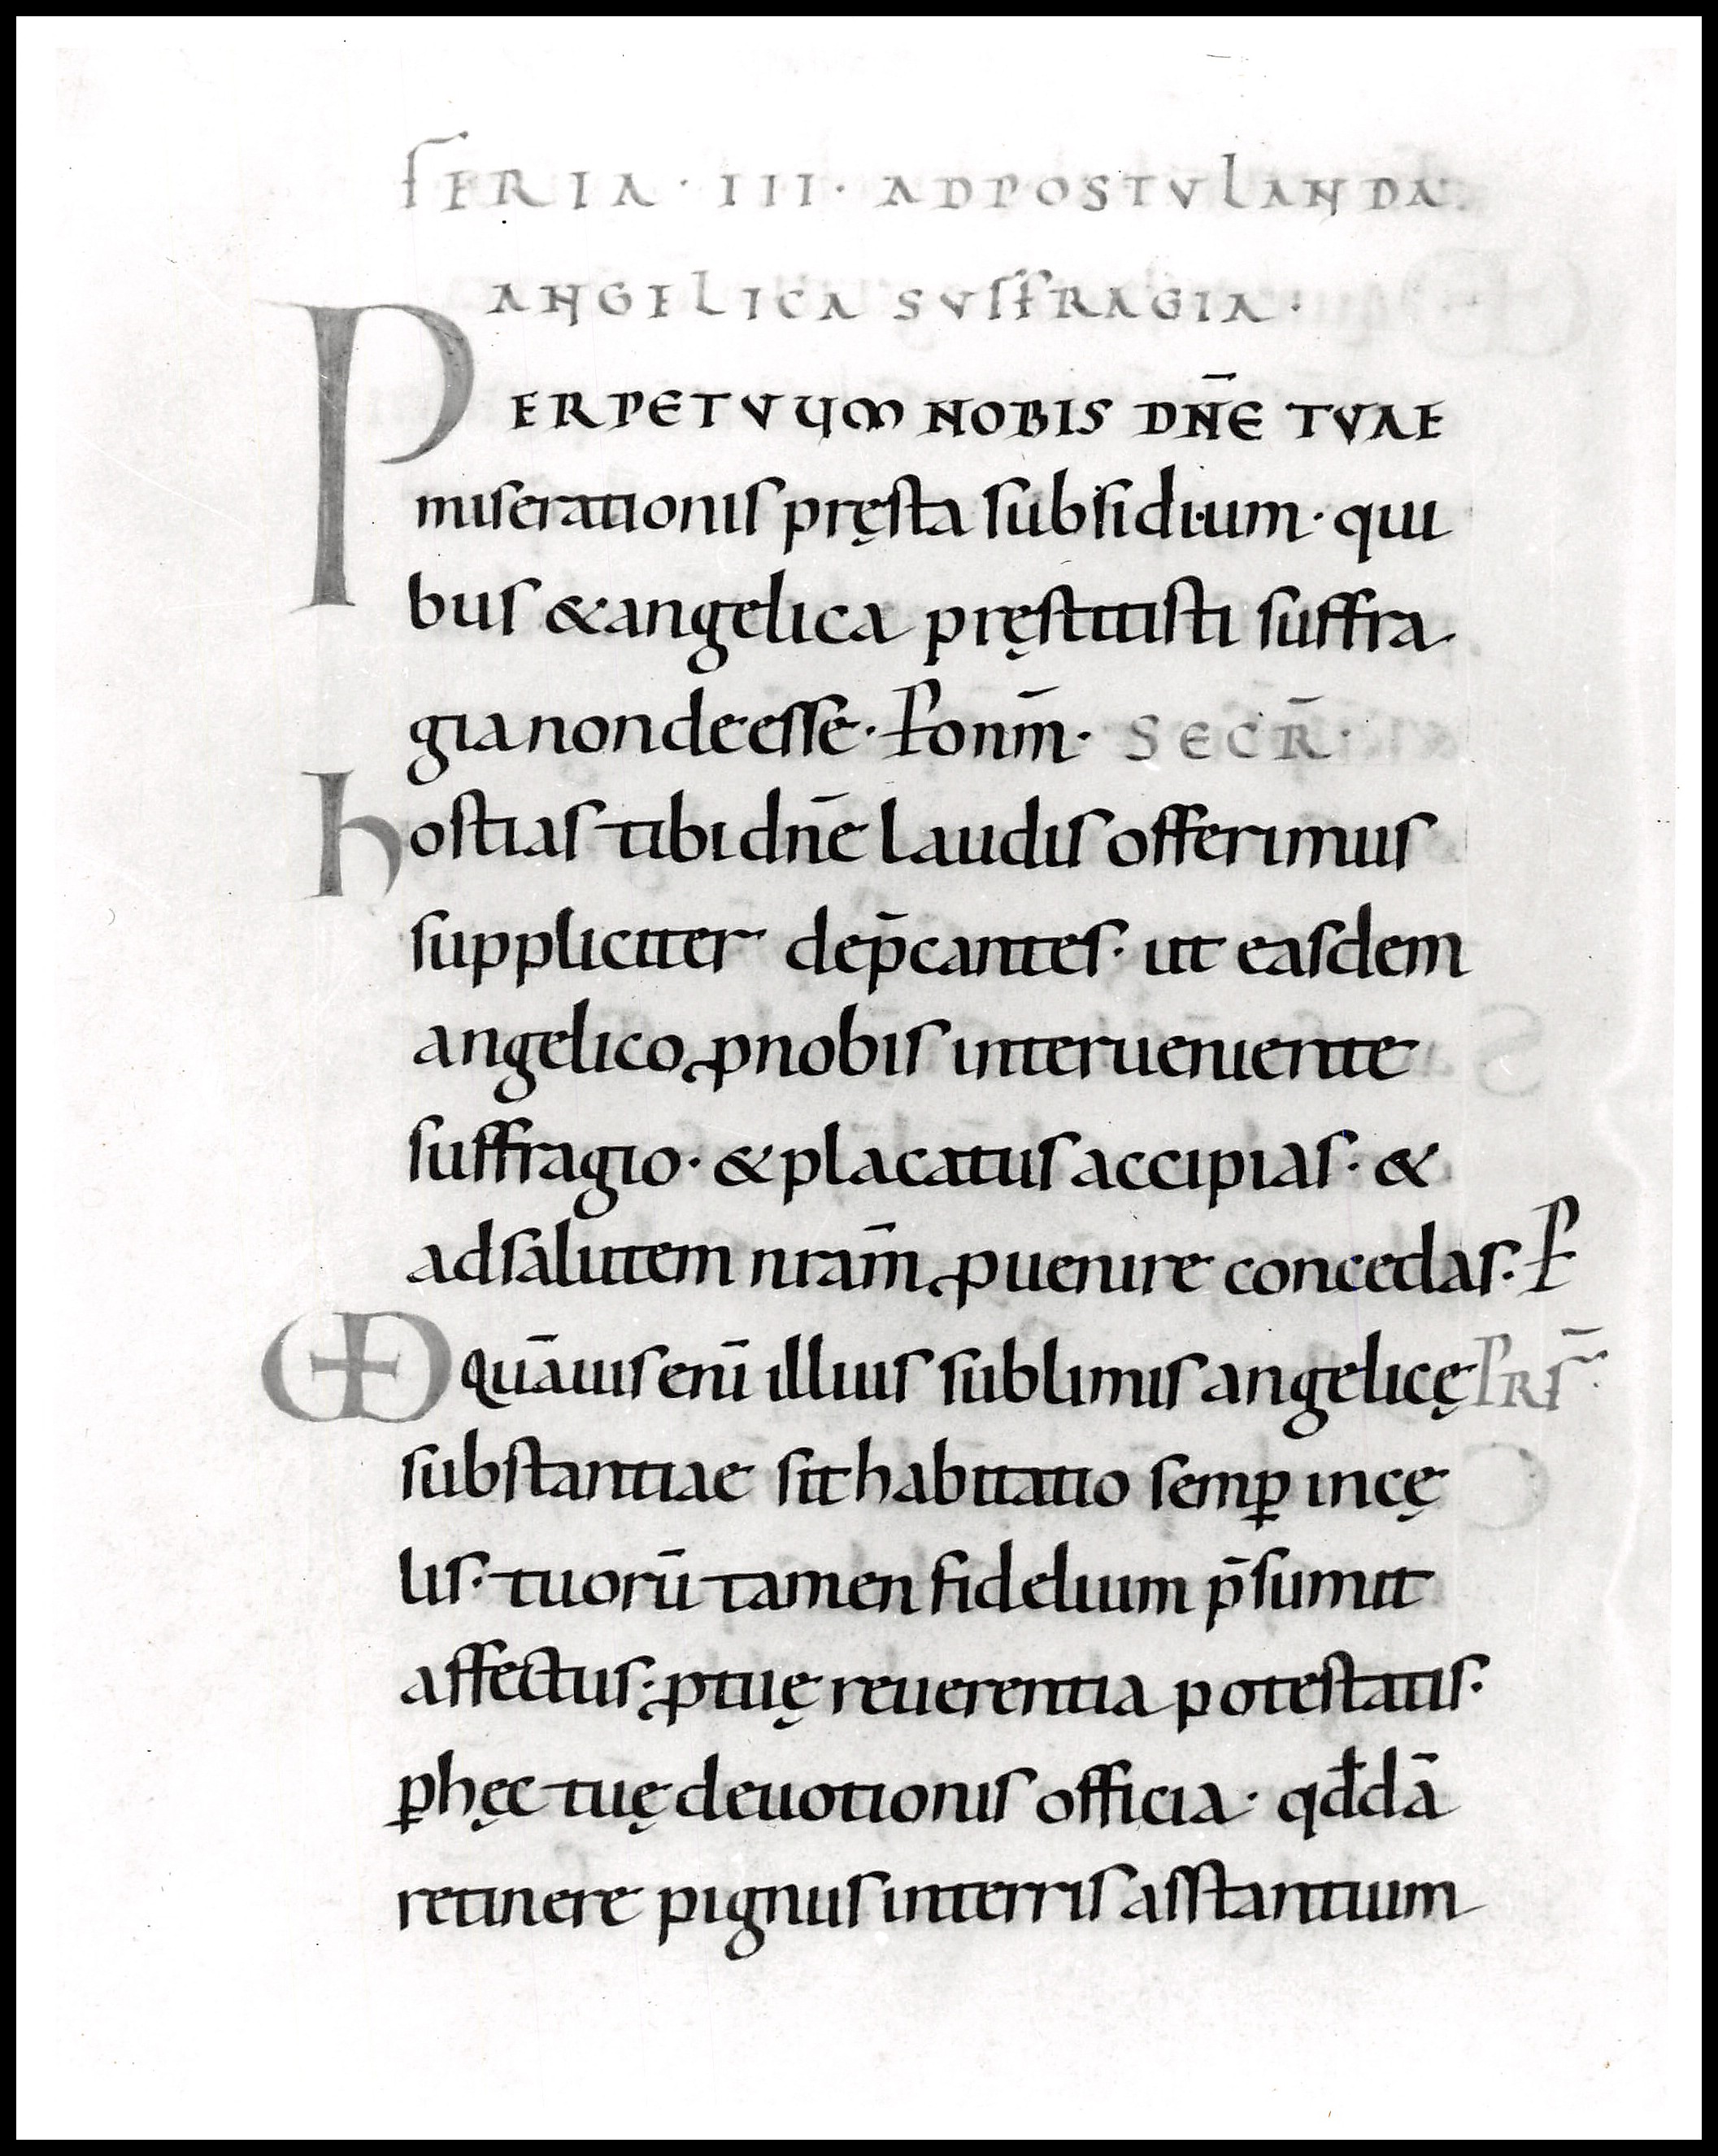 FERIA · III · AD POSTULANDA
ANGELICA SUFFRAGIA ·
PERPETVUM NOBIS DN̄E TVAE
miserationis pręsta subsidium · qui
bus & angelica pręstitisti suffra
gia non deesse · P onm̄ · SECR̄ ·
hostias tibi dn̄e laudis offerimus
suppliciter dep̄cantes · ut easdem
angelico ꝓ nobis interueniente
suffragio · & placatus accipias · &
ad salutem nram̄ ꝓuenire concedas · P
UD Quāuis enī illius sublimis angelicę PRF̄ ·
substantiae sit habitatio semꝑ in cę
lis · tuorū tamen fidelium p̄sumit
affectus · ꝓ tuę reuerentia potestatis ·
ꝑ hęc tuę deuotionis officia · qđdā
retinere pignus in terris asstantium